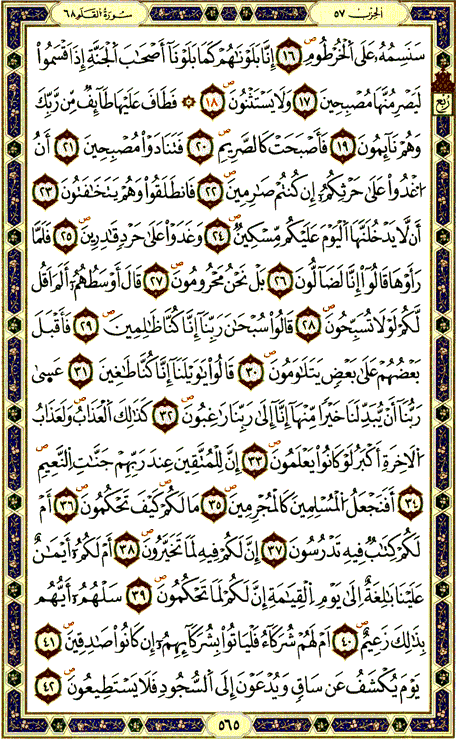 الحزب ٥٧
سورة القلم ٦٨
سَنَسِمُهُۥ عَلَى الْخُرْطُومِ ١٦ إِنَّا بَلَوْنَٰهُمْ كَمَا بَلَوْنَآ أَصْحَٰبَ الْجَنَّةِ إِذْ أَقْسَمُوا۟
لَيَصْرِمُنَّهَا مُصْبِحِينَ ١٧ وَلَا يَسْتَثْنُونَ ١٨ فَطَافَ عَلَيْهَا طَآئِفٌ مِّن رَّبِّكَ
ربع
وَهُمْ نَآئِمُونَ ١٩ فَأَصْبَحَتْ كَالصَّرِيمِ ٢٠ فَتَنَادَوْا۟ مُصْبِحِينَ ٢١ أَنُ
اغْدُوا۟ عَلَىٰ حَرْثِكُمْۥٓ إِن كُنتُمْ صَٰرِمِينَ ٢٢ فَانطَلَقُوا۟ وَهُمْ يَتَخَٰفَتُونَ ٢٣
أَن لَّا يَدْخُلَنَّهَا الْيَوْمَ عَلَيْكُم مِّسْكِينٌ ٢٤ وَغَدَوْا۟ عَلَىٰ حَرْدٍ قَٰدِرِينَ ٢٥ فَلَمَّا
رَأَوْهَا قَالُوٓا۟ إِنَّا لَضَآلُّونَ ٢٦ بَلْ نَحْنُ مَحْرُومُونَ ٢٧ قَالَ أَوْسَطُهُمْۥٓ أَلَمْ أَقُل
لَّكُمْ لَوْلَا تُسَبِّحُونَ ٢٨ قَالُوا۟ سُبْحَٰنَ رَبِّنَآ إِنَّا كُنَّا ظَٰلِمِينَ ٢٩ فَأَقْبَلَ
بَعْضُهُمْ عَلَىٰ بَعْضٍ يَتَلَٰوَمُونَ ٣٠ قَالُوا۟ يَٰوَيْلَنَآ إِنَّا كُنَّا طَٰغِينَ ٣١ عَسَىٰ
رَبُّنَآ أَنْ يُّبَدِّلَنَا خَيْرًا مِّنْهَآ إِنَّآ إِلَىٰ رَبِّنَا رَٰغِبُونَ ٣٢ كَذَٰلِكَ الْعَذَابُ وَلَعَذَابُ
الْأَخِرَةِ أَكْبَرُ لَوْ كَانُوا۟ يَعْلَمُونَ ٣٣ إِنَّ لِلْمُتَّقِينَ عِندَ رَبِّهِمْ جَنَّٰتِ النَّعِيمِ
٣٤ أَفَنَجْعَلُ الْمُسْلِمِينَ كَالْمُجْرِمِينَ ٣٥ مَا لَكُمْ كَيْفَ تَحْكُمُونَ ٣٦ أَمْ
لَكُمْ كِتَٰبٌ فِيهِ تَدْرُسُونَ ٣٧ إِنَّ لَكُمْ فِيهِ لَمَا تَخَيَّرُونَ ٣٨ أَمْ لَكُمْۥٓ أَيْمَٰنٌ
عَلَيْنَا بَٰلِغَةٌ إِلَىٰ يَوْمِ الْقِيَٰمَةِ إِنَّ لَكُمْ لَمَا تَحْكُمُونَ ٣٩ سَلْهُمْۥٓ أَيُّهُم
بِذَٰلِكَ زَعِيمٌ ٤٠ أَمْ لَهُمْ شُرَكَآءُ فَلْيَأْتُوا۟ بِشُرَكَآئِهِمْۥٓ إِن كَانُوا۟ صَٰدِقِينَ ٤١
يَوْمَ يُكْشَفُ عَن سَاقٍ وَيُدْعَوْنَ إِلَى السُّجُودِ فَلَا يَسْتَطِيعُونَ ٤٢
٥٦٥